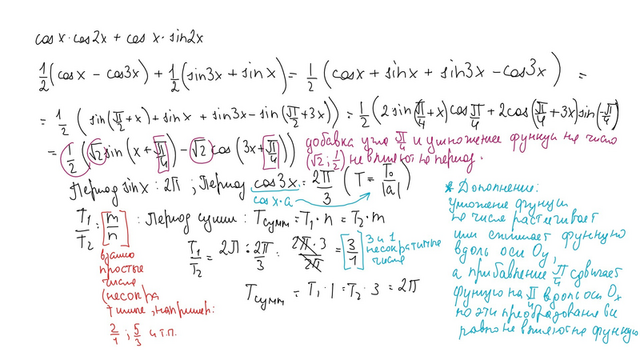 cosx·cos2x + cos x·sin2x
1/2(cosx − cos3x) + 1/2(sin3x + sinx) = 1/2(cosx + sinx + sin3x − cos3x) =
= 1/2(sin(π/2+x) + sinx + sin3x − sin(π/2+3x)) = 1/2(2sin(π/4+x)cosπ/4 + 2cos(π/4+3x)sin(−π/4)
= 1/2(√2 sin(x+π/4) − √2 cos(3x+π/4))
добавка угла π/4 и умножение функции на число
(√2; 1/2) не влияют на период.
Период sinx: 2π; Период cos3x = 2π/3 (T = T₀/|a|)
cosx·a
T₁/T₂ = m/n : Период суммы: Tсумм = T₁·n = T₂·m
взаимно
простые
числа
(несокра
тимые, например:
2/1, 5/3 и т.п.
T₁/T₂ = 2π : 2π/3 = 2π·3/2π = 3/1
3 и 1
несократимые
числа
Tсумм = T₁·1 = T₂·3 = 2π
* Дополнение:
умножение функции
на число растягивает
или сжимает функцию
вдоль оси Oy,
а прибавление π/4 сдвигает
функцию на π/4 вдоль оси Ox
но эти преобразования все
равно не влияют на функцию